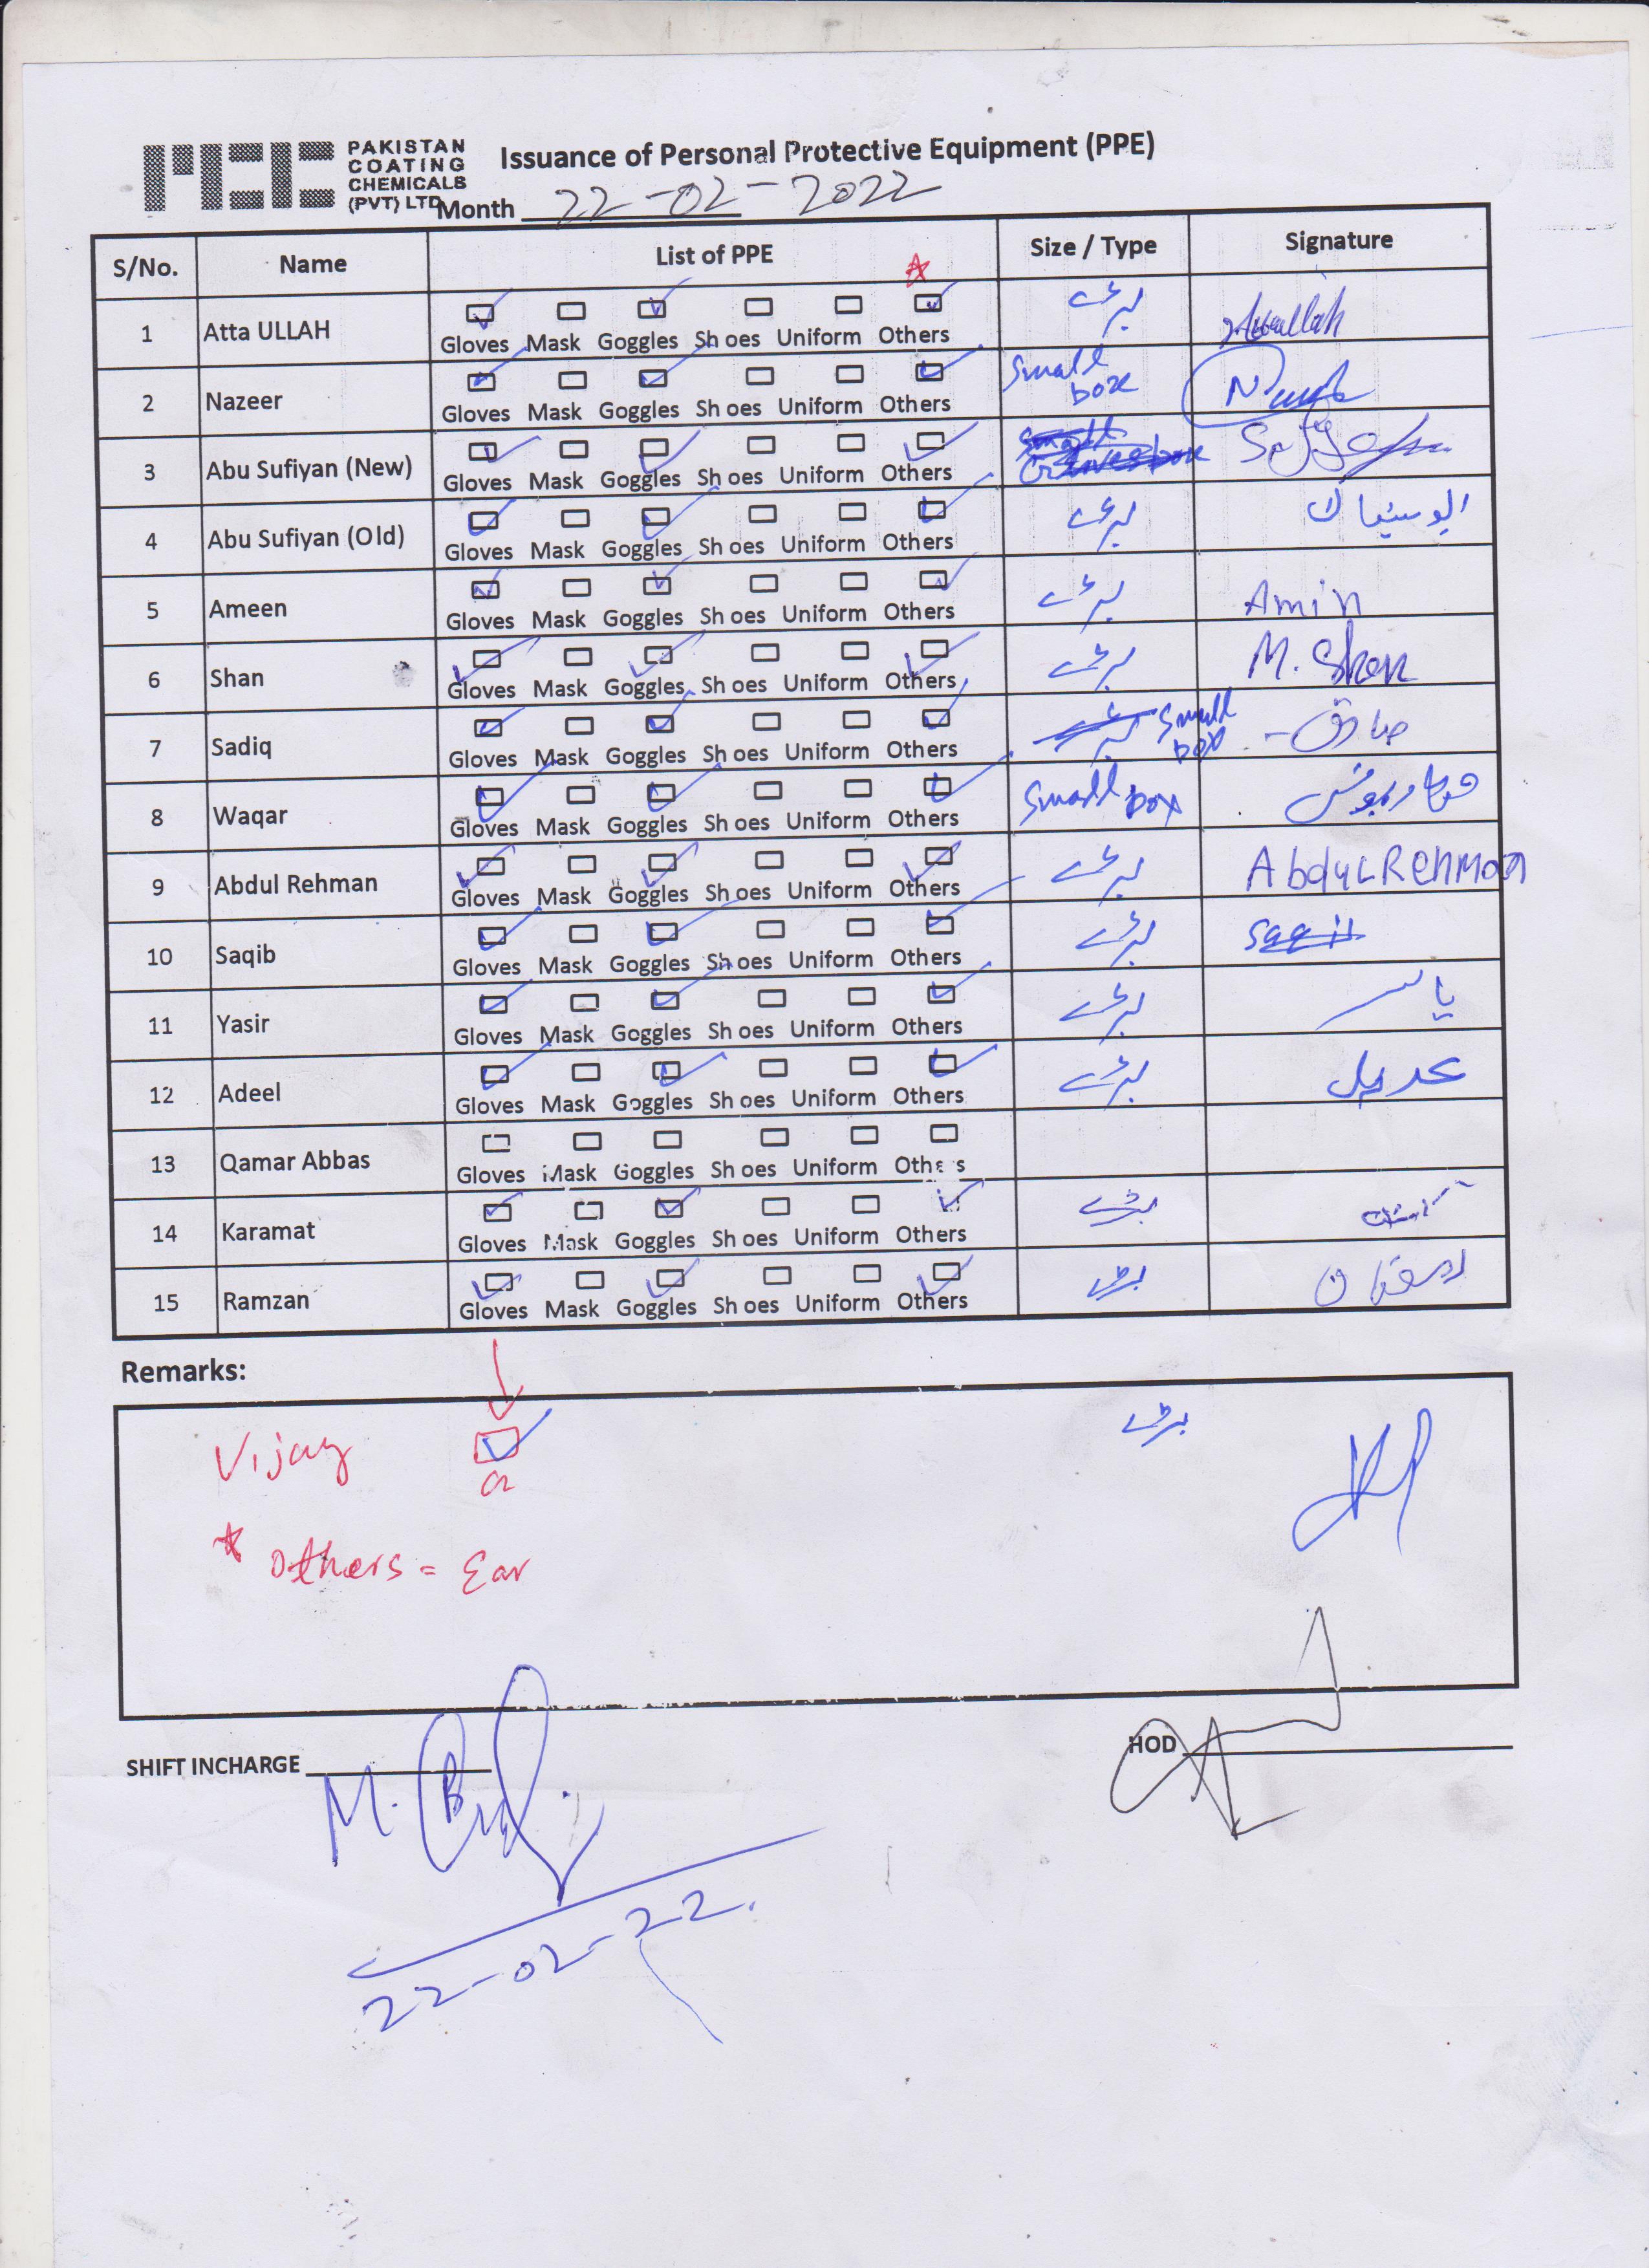 PCC PAKISTAN
COATING
CHEMICALS
(PVT) LTD
Issuance of Personal Protective Equipment (PPE)
Month 22-02-2022
S/No. Name List of PPE Size / Type Signature
1 Atta ULLAH Gloves Mask Goggles Shoes Uniform Others بڑے Attaullah
2 Nazeer Gloves Mask Goggles Shoes Uniform Others Small box
3 Abu Sufiyan (New) Gloves Mask Goggles Shoes Uniform Others
4 Abu Sufiyan (Old) Gloves Mask Goggles Shoes Uniform Others بڑے ابوسفیان
5 Ameen Gloves Mask Goggles Shoes Uniform Others بڑے Amin
6 Shan Gloves Mask Goggles Shoes Uniform Others بڑے M. Shan
7 Sadiq Gloves Mask Goggles Shoes Uniform Others Small box صادق
8 Waqar Gloves Mask Goggles Shoes Uniform Others Small box
9 Abdul Rehman Gloves Mask Goggles Shoes Uniform Others بڑے Abdul Rehman
10 Saqib Gloves Mask Goggles Shoes Uniform Others بڑے Saqib
11 Yasir Gloves Mask Goggles Shoes Uniform Others بڑے یاسر
12 Adeel Gloves Mask Goggles Shoes Uniform Others بڑے عدیل
13 Qamar Abbas Gloves Mask Goggles Shoes Uniform Others
14 Karamat Gloves Mask Goggles Shoes Uniform Others بڑے
15 Ramzan Gloves Mask Goggles Shoes Uniform Others بڑے رمضان
Remarks:
Vijay بڑے
* Others = Ear
SHIFT INCHARGE HOD
22-02-22.